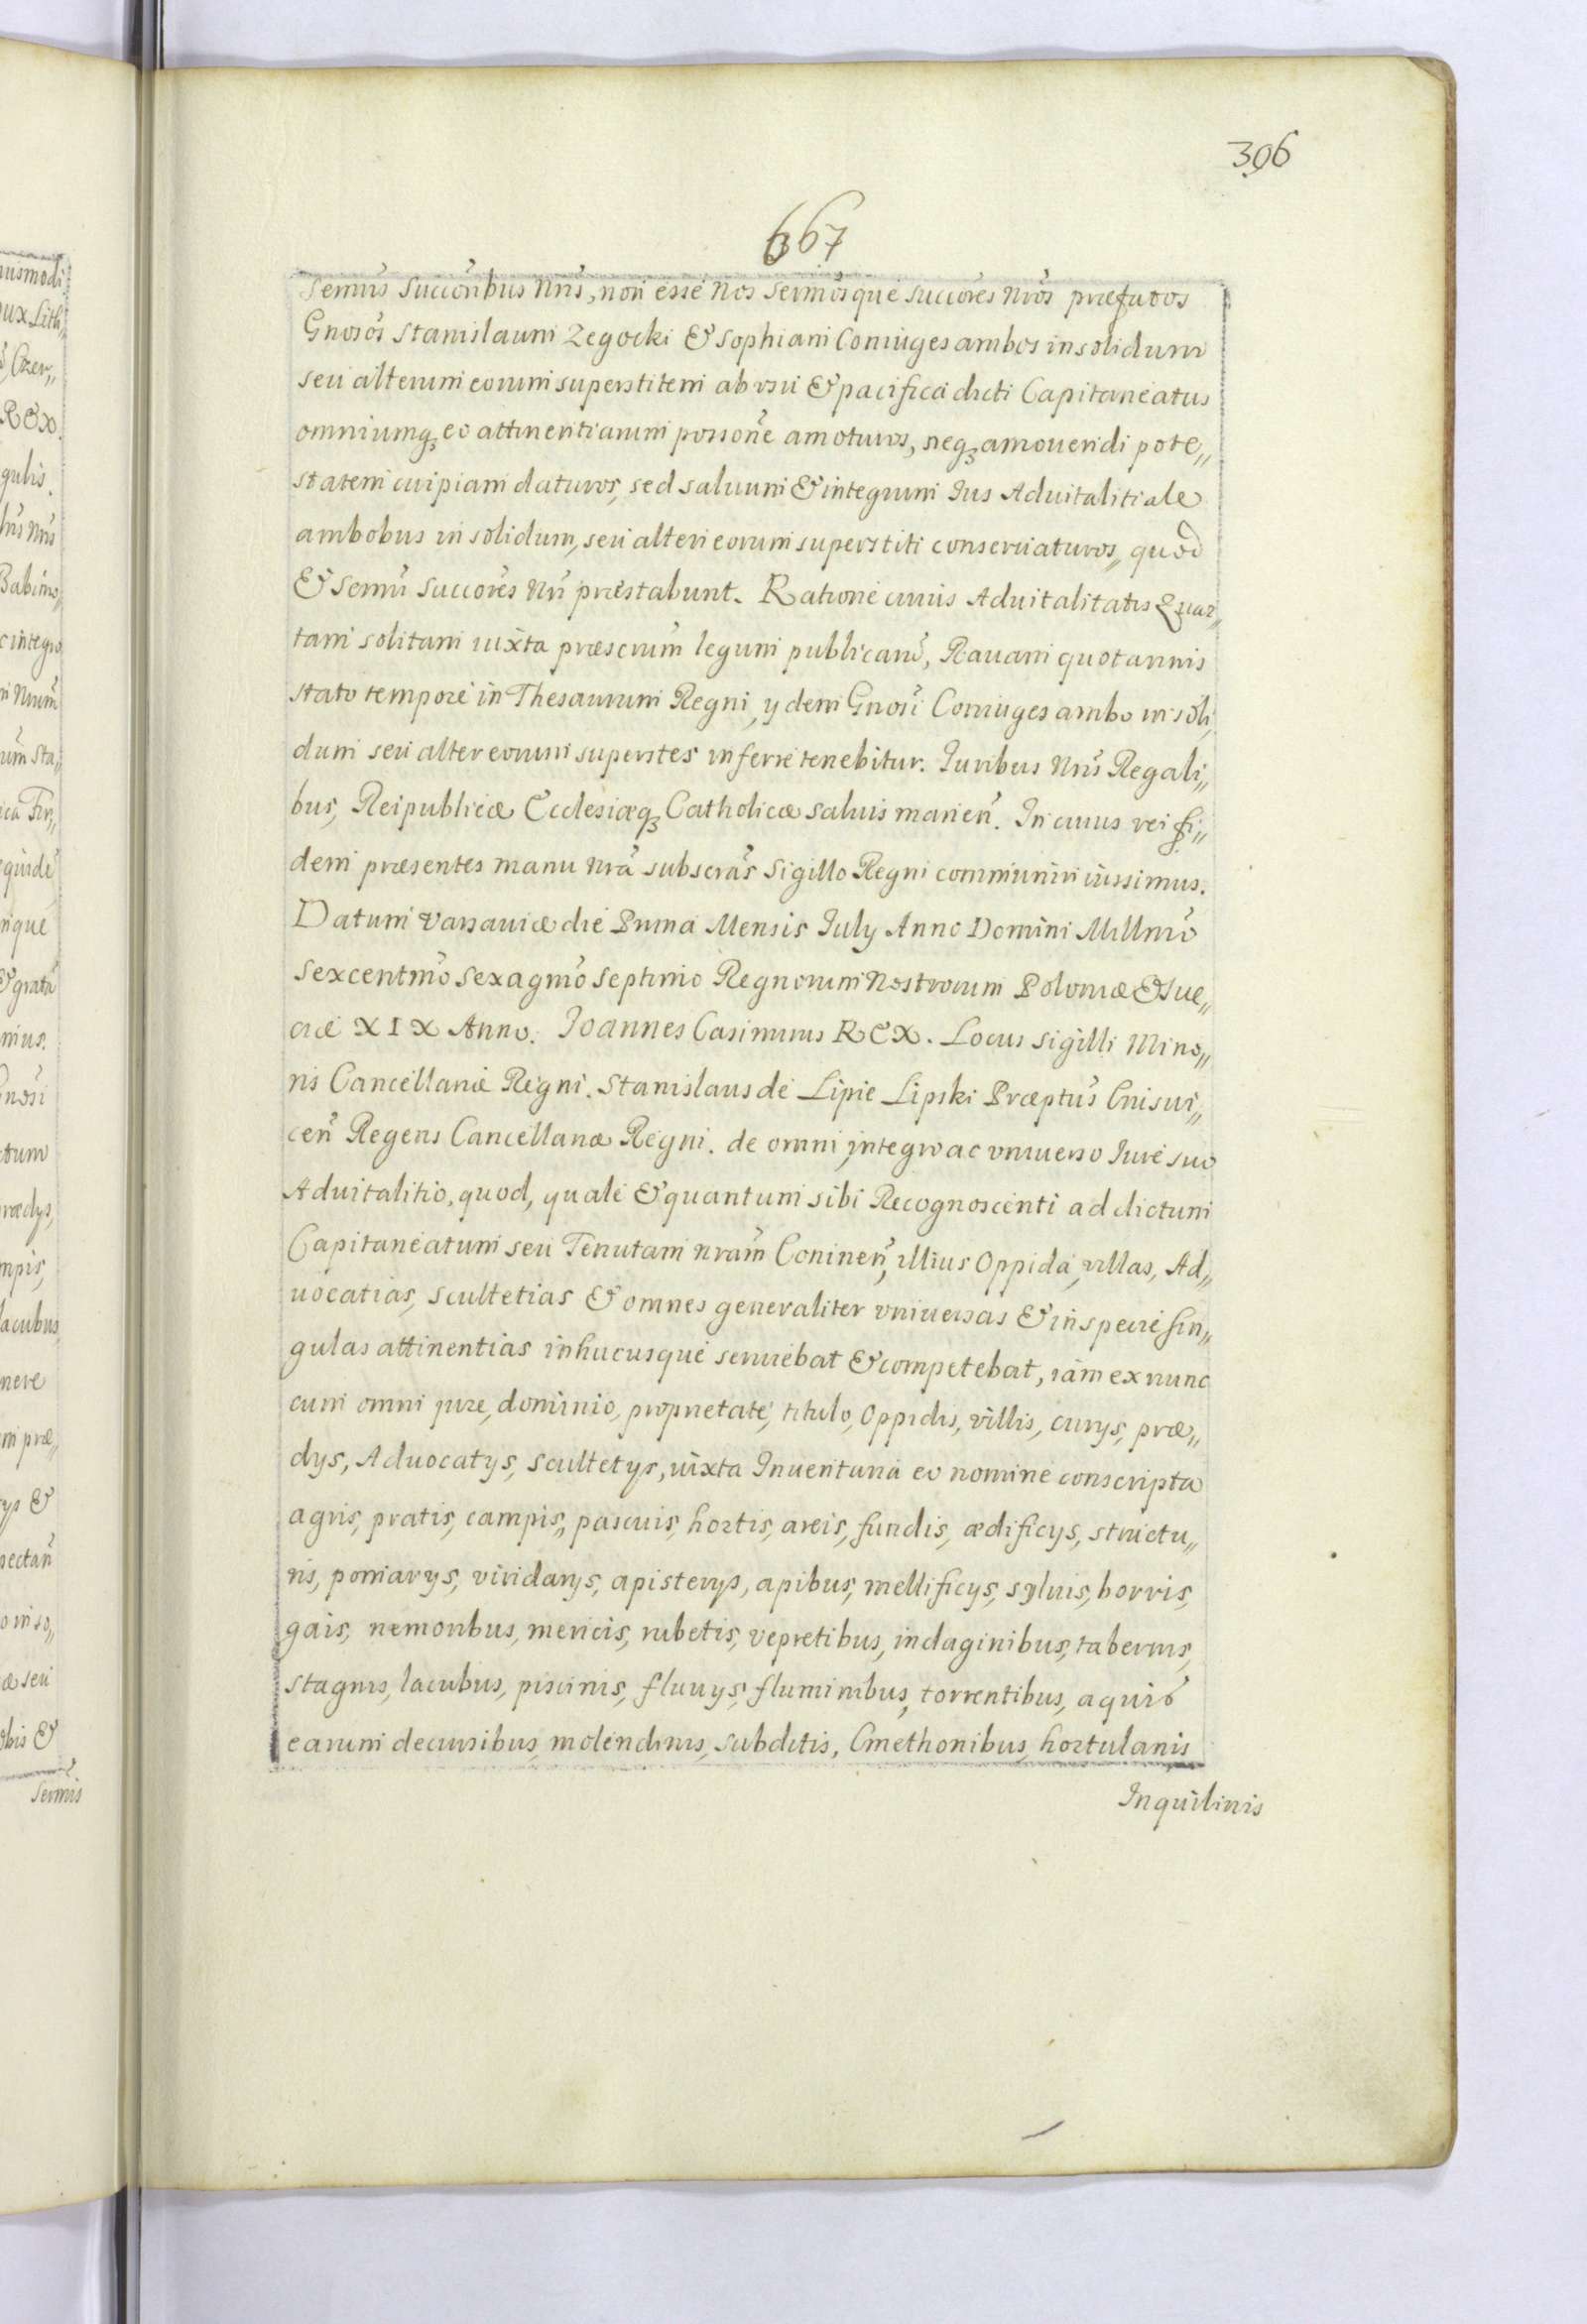 306
667
Sermis Succoribus Nris, non esse Nos Sermosque Succores Nros præfatos
Gnosos Stanislaum Zegocki & Sophiam Coniuges ambos in solidum
seu alterum eorum superstitem ab vsu & pacifica dicti Capitaneatus
omniumq; eo attinentiarum possone amoturos, neq; amouendi pote„
statem cuipiam daturos, sed saluum & integrum Ius Aduitalitiale
ambobus in solidum, seu alteri eorum superstiti conseruaturos, quod
& Sermi Succores Nri præstabunt. Ratione cuius Aduitalitatis Quar„
tam solitam iuxta præscrum legum publicaru, Rauam quotannis
stato tempore in Thesaurum Regni, ydem Gnosi Coniuges ambo in soli„
dum seu alter eorum superstes inferre tenebitur. Iuribus Nris Regali„
bus, Reipublicæ Ecclesiæq; Catholicæ saluis manen. In cuius rei fi„
dem præsentes manu nra subscras Sigillo Regni communiri iussimus.
Datum Varsauiæ die Prima Mensis July Anno Domini Millmo
Sexcentmo Sexagmo Septimo Regnorum Nostrorum Poloniæ & Sue„
ciæ XIX Anno. Joannes Casimirus REX. Locus Sigilli Mino„
ris Cancellariæ Regni. Stanislaus de Lipie Lipski Præptus Cnisui„
cen Regens Cancellariæ Regni. de omni integro ac vniuerso Iure suo
Aduitalitio, quod, quale & quantum sibi Recognoscenti ad dictum
Capitaneatum seu Tenutam nram Coninen, illius Oppida, villas, Ad„
uocatias, Scultetias & omnes generaliter vniuersas & in specie sin„
gulas attinentias inhucusque seruiebat & competebat, iam ex nunc
cum omni jure, dominio, proprietate, titulo, Oppidis, villis, curys, præ„
dys, Aduocatys, Scultetys, iuxta Inuentaria eo nomine conscripta
agris, pratis, campis, pascuis, hortis, areis, fundis, ædificys, structu„
ris, pomarys, viridarys, apisterys, apibus, mellificys, syluis, borris,
gais, nemoribus, mericis, rubetis, vepretibus, indaginibus, tabernis,
stagnis, lacubus, piscinis, fluuys, fluminibus, torrentibus, aquis
earum decursibus, molendinis, subditis, Cmethonibus, hortulanis
Inquilinis